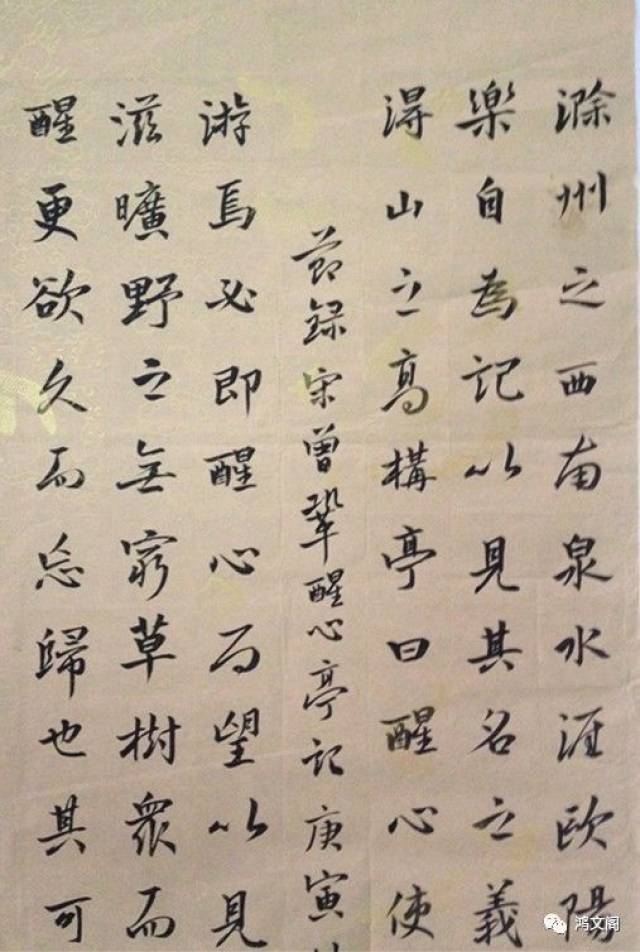 滁州之西南泉水涯歐陽
樂自為記以見其名之義
得山之高構亭曰醒心使
節録宋曾鞏醒心亭記庚寅
游焉必即醒心而望以見
滋曠野之無窮草樹衆而
醒更欲久而忘歸也其可
鸿文阁